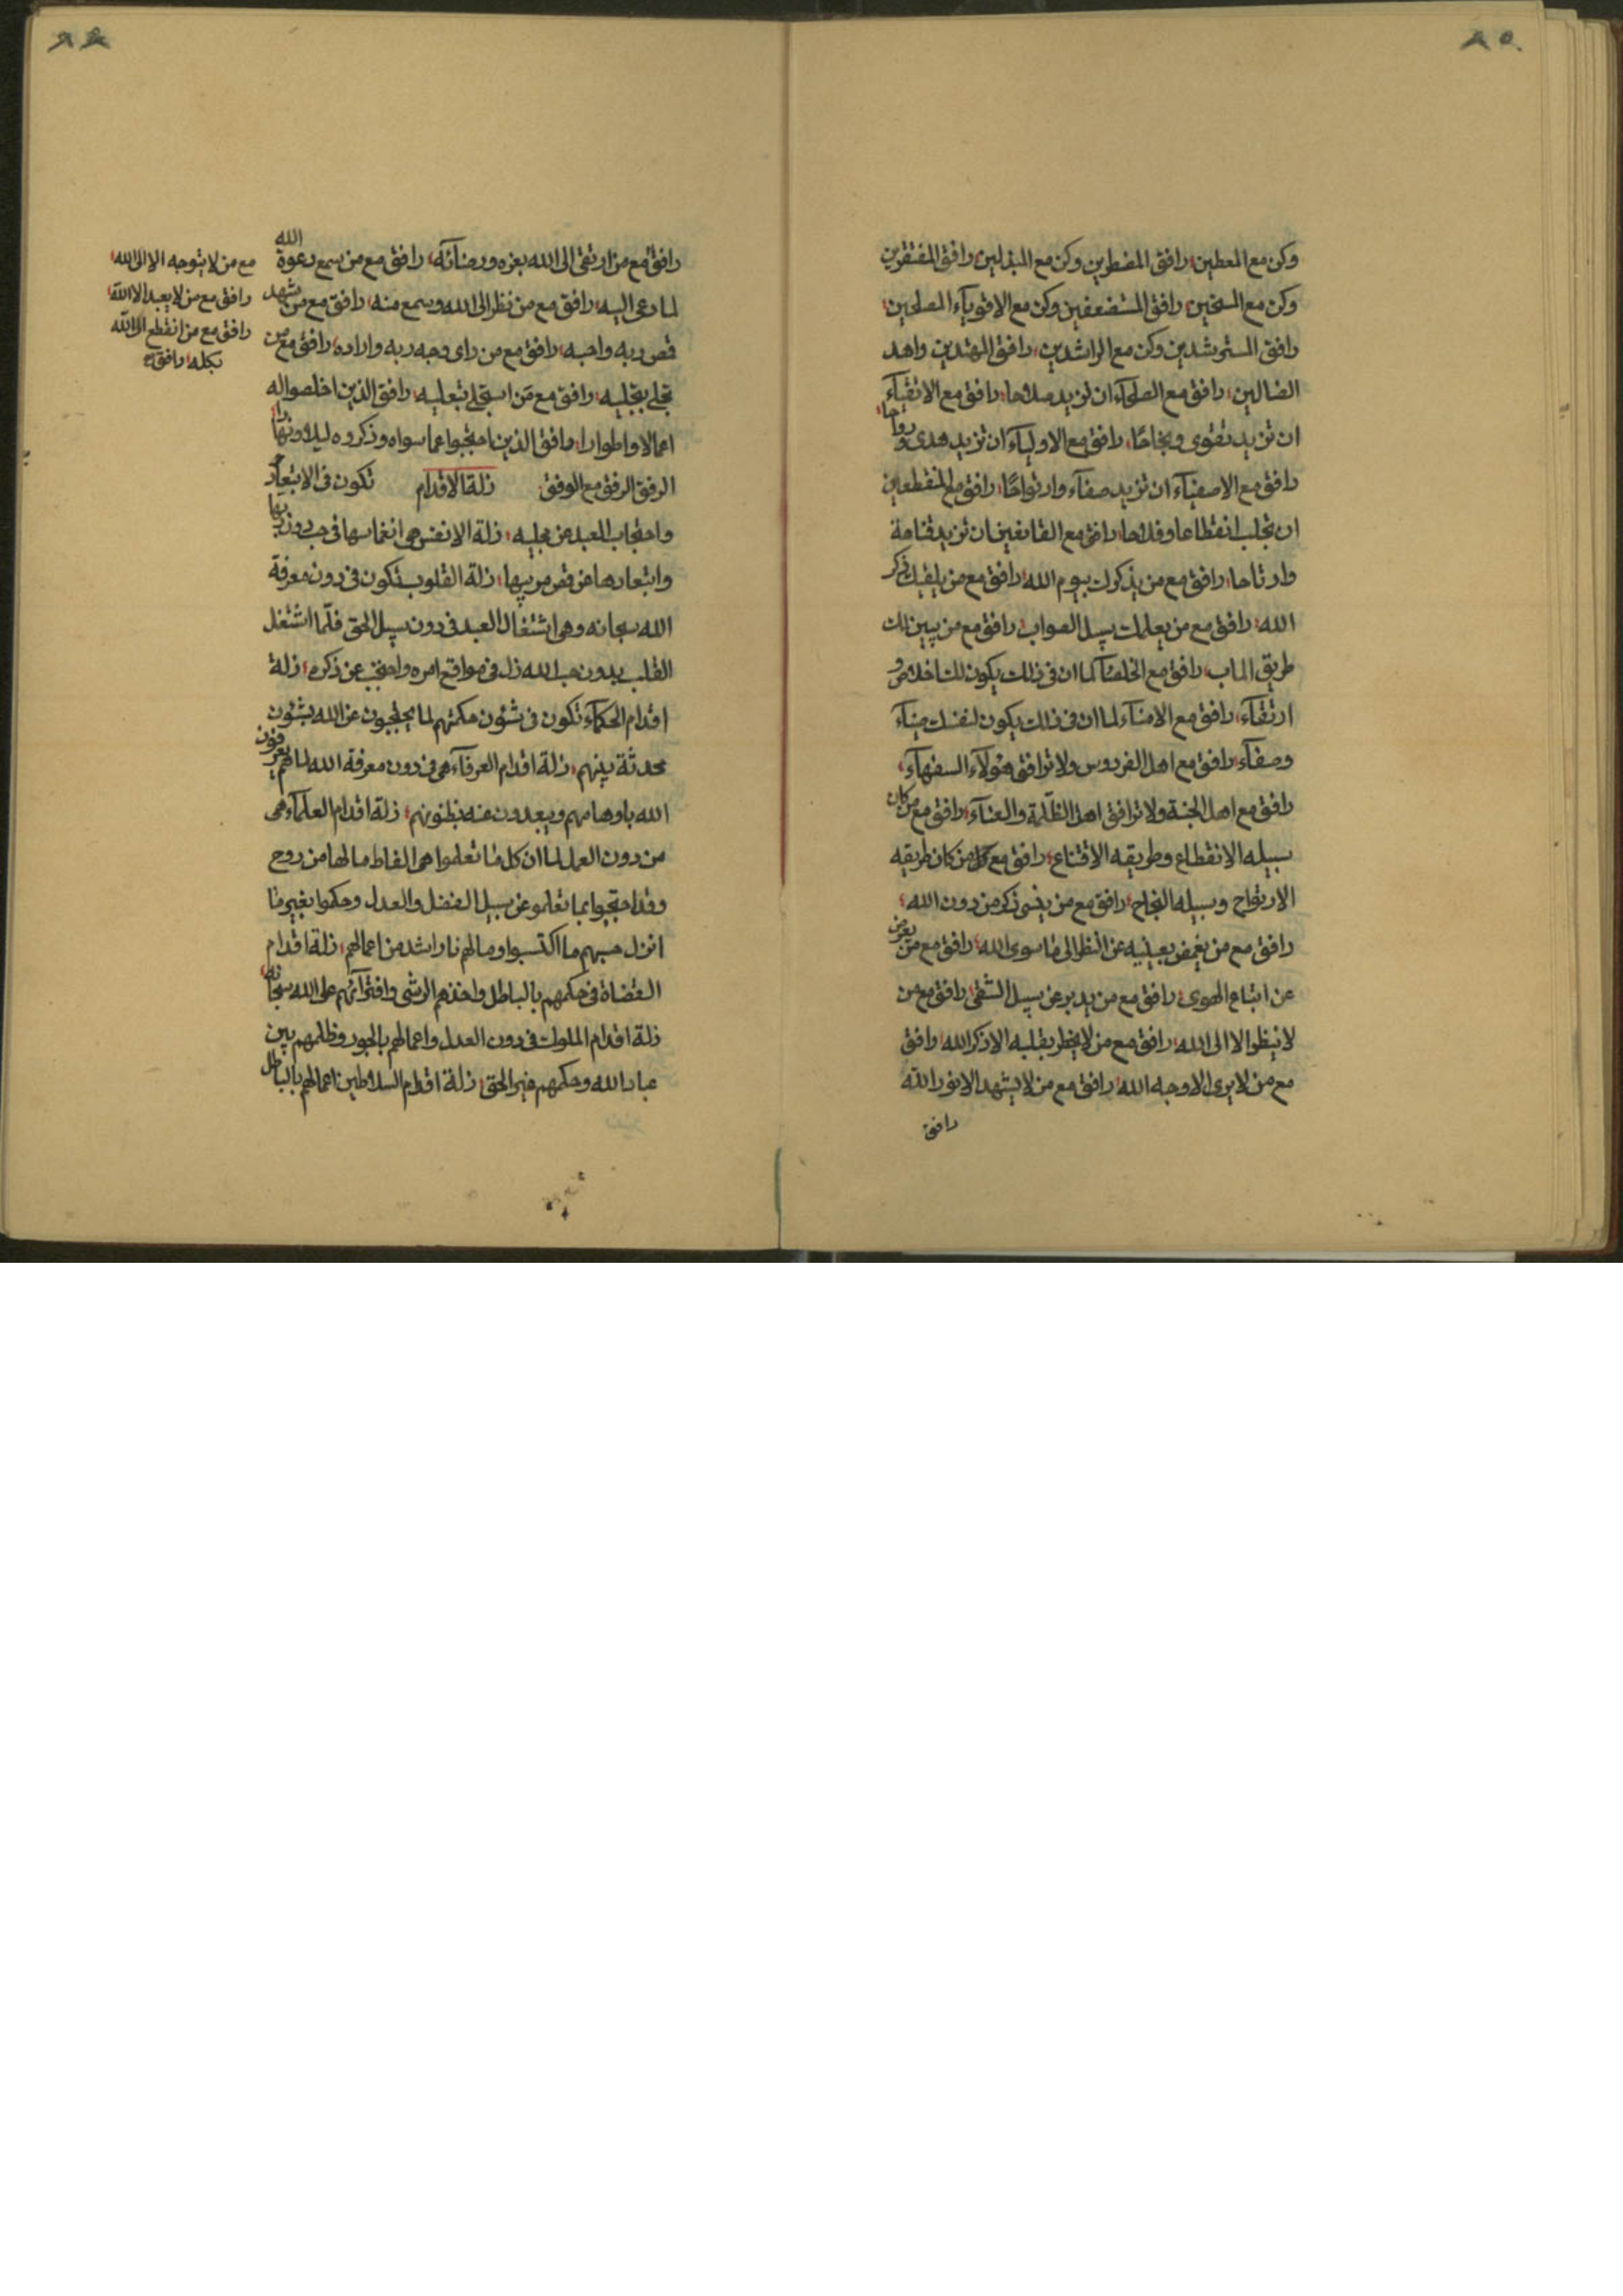 ٨٥٠
وكن مع المعطين؛ رافق المضطرين وكن مع المبذلين؛ رافق المفتقرين
وكن مع السخين؛ رافق المستضعفين وكن مع الاقوياء المصلحين؛
رافق المسترشدين وكن مع الراشدين؛ رافق المهتدين واهد
الضالين؛ رافق مع الصلحاء ان تزيد صلاحا؛ رافق مع الاتقياء
ان تزيد تقوى ونجاحًا؛ رافق مع الاولياء ان تزيد هدى ورواحا؛
رافق مع الاصفياء ان تزيد صفاء وارتواحًا؛ رافق مع المنقطعين
ان تجلب انقطاعا وفلاحا؛ رافق مع القانعين ان تزيد قناعة
وارتاحا؛ رافق مع من يذكرك بيوم الله؛ رافق مع من يلقيك ذكر
الله؛ رافق مع من يعلمك سبيل الصواب؛ رافق مع من يبين لك
طريق الماب؛ رافق مع الخلصاء لما ان فى ذلك يكون لك اخلاص و
ارتقاء؛ رافق مع الامناء لما ان فى ذلك يكون لنفسك ضياء
وصفاء؛ رافق مع اهل الفردوس ولا ترافق هؤلاء السفهاء؛
رافق مع اهل الجنة ولا ترافق اهل الظلمة والعناء؛ رافق مع من كان
سبيله الانقطاع وطريقه الاقتناع؛ رافق مع كل من كان طريقه
الارتواح وسبيله النجاح؛ رافق مع من ينسى ذكر من دون الله؛
رافق مع من يغمض بعينيه عن النظر الى ما سوى الله؛ رافق مع من يعرض
عن اتباع الهوى؛ رافق مع من يدبر عن سبيل الشقى؛ رافق مع من
لا ينظر الا الى الله؛ رافق مع من لا يخطر بقلبه الا ذكر الله؛ رافق
مع من لا يرى الا وجه الله؛ رافق مع من لا يشهد الا نور الله
رافق
رافق مع من ارتقى الى الله بعزه ورضائه؛ رافق مع من سمع دعوة الله
لما دعى اليه؛ رافق مع من نظر الى الله وسمع منه؛ رافق مع من شهد
قمص ربه واحبه؛ رافق مع من راى وجه ربه واراده؛ رافق مع من
تجلى بتجليه؛ رافق مع من استجلى بتعليه؛ رافق الذين اخلصوا له
اعمالا واطوارا؛ رافق الذين احتجبوا عما سواه وذكروه ليلا ونهارا؛
الرفق الرفق مع الوفق زلة الاقدام تكون فى الابتعاد
واحتجاب العبد عن مجليه؛ زلة الانفس هى انغماسها فى حب دون ربها
وابتعادها عن قمص مربيها؛ زلة القلوب تكون فى دون معرفة
الله سبحانه وهى اشتغال العبد فى دون سبيل الحق فلما اشتغل
القلب بدون حب الله زل فى مواقع امره واحتجب عن ذكره؛ زلة
اقدام الحكماء تكون فى شئون حكمتهم لما يحتجبون عن الله بشئون
محدثة بينهم؛ زلة اقدام العرفاء هى فى دون معرفة الله لما هم يعرفون
الله باوهامهم ويبعدون عنه بظنونهم؛ زلة اقدام العلماء هى
من دون العمل لما ان كل ما تعلموا هى الفاظ ما لها من روح
وقد احتجبوا بما تعلمو عن سبيل الفضل والعدل وحكموا بغير ما
انزل حسبهم ما اكتسبوا وما لهم نارا اشد من اعمالهم؛ زلة اقدام
القضاة فى حكمهم بالباطل واخذهم الرشى وافترائهم على الله سبحانه؛
زلة اقدام الملوك فى دون العدل واعمالهم بالجور وظلمهم بين
عباد الله وحكمهم غير الحق؛ زلة اقدام السلاطين اعمالهم بالباطل
مع من لا يتوجه الا الى الله؛
رافق مع من لا يعبد الا الله؛
رافق مع من انقطع الى الله
بكله؛ رافق